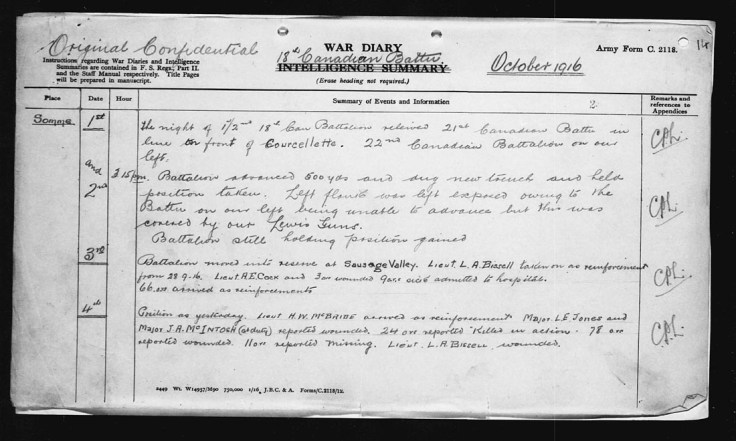 Original Confidential
WAR DIARY
18th Canadian Battn.
INTELLIGENCE SUMMARY
(Erase heading not required.)
October 1916
Army Form C. 2118.
14
Instructions regarding War Diaries and Intelligence
Summaries are contained in F. S. Regs., Part II.
and the Staff Manual respectively. Title Pages
will be prepared in manuscript.
Place Date Hour Summary of Events and Information 2. Remarks and references to Appendices
Somme 1st The night of 1/2nd 18th Can Battalion relieved 21st Canadian Battn in
line in front of Courcellette. 22nd Canadian Battalion on our
left.
and 3.15pm. Battalion advanced 600 yds and dug new trench and held
2nd position taken. Left flank was left exposed owing to the
Battn on our left being unable to advance but this was
covered by our Lewis Guns.
Battalion still holding position gained
3rd Battalion moved into reserve at Sausage Valley. Lieut. L.A. Bissell taken on as reinforcement
from 28.9.16. Lieut A.E. Cock and 3 or wounded 9 ors sick admitted to hospital.
66 or arrived as reinforcements
4th Position as yesterday. Lieut H.W. McBride arrived as reinforcement Major L.E. Jones and
Major J.A. McIntosh (at duty) reported wounded. 24 or reported killed in action. 78 or
reported wounded. 11 or reported missing. Lieut. L.A. Bissell wounded.
2449 Wt. W14957/M90 750,000 1/16 J.B.C. & A. Forms/C.2118/12.